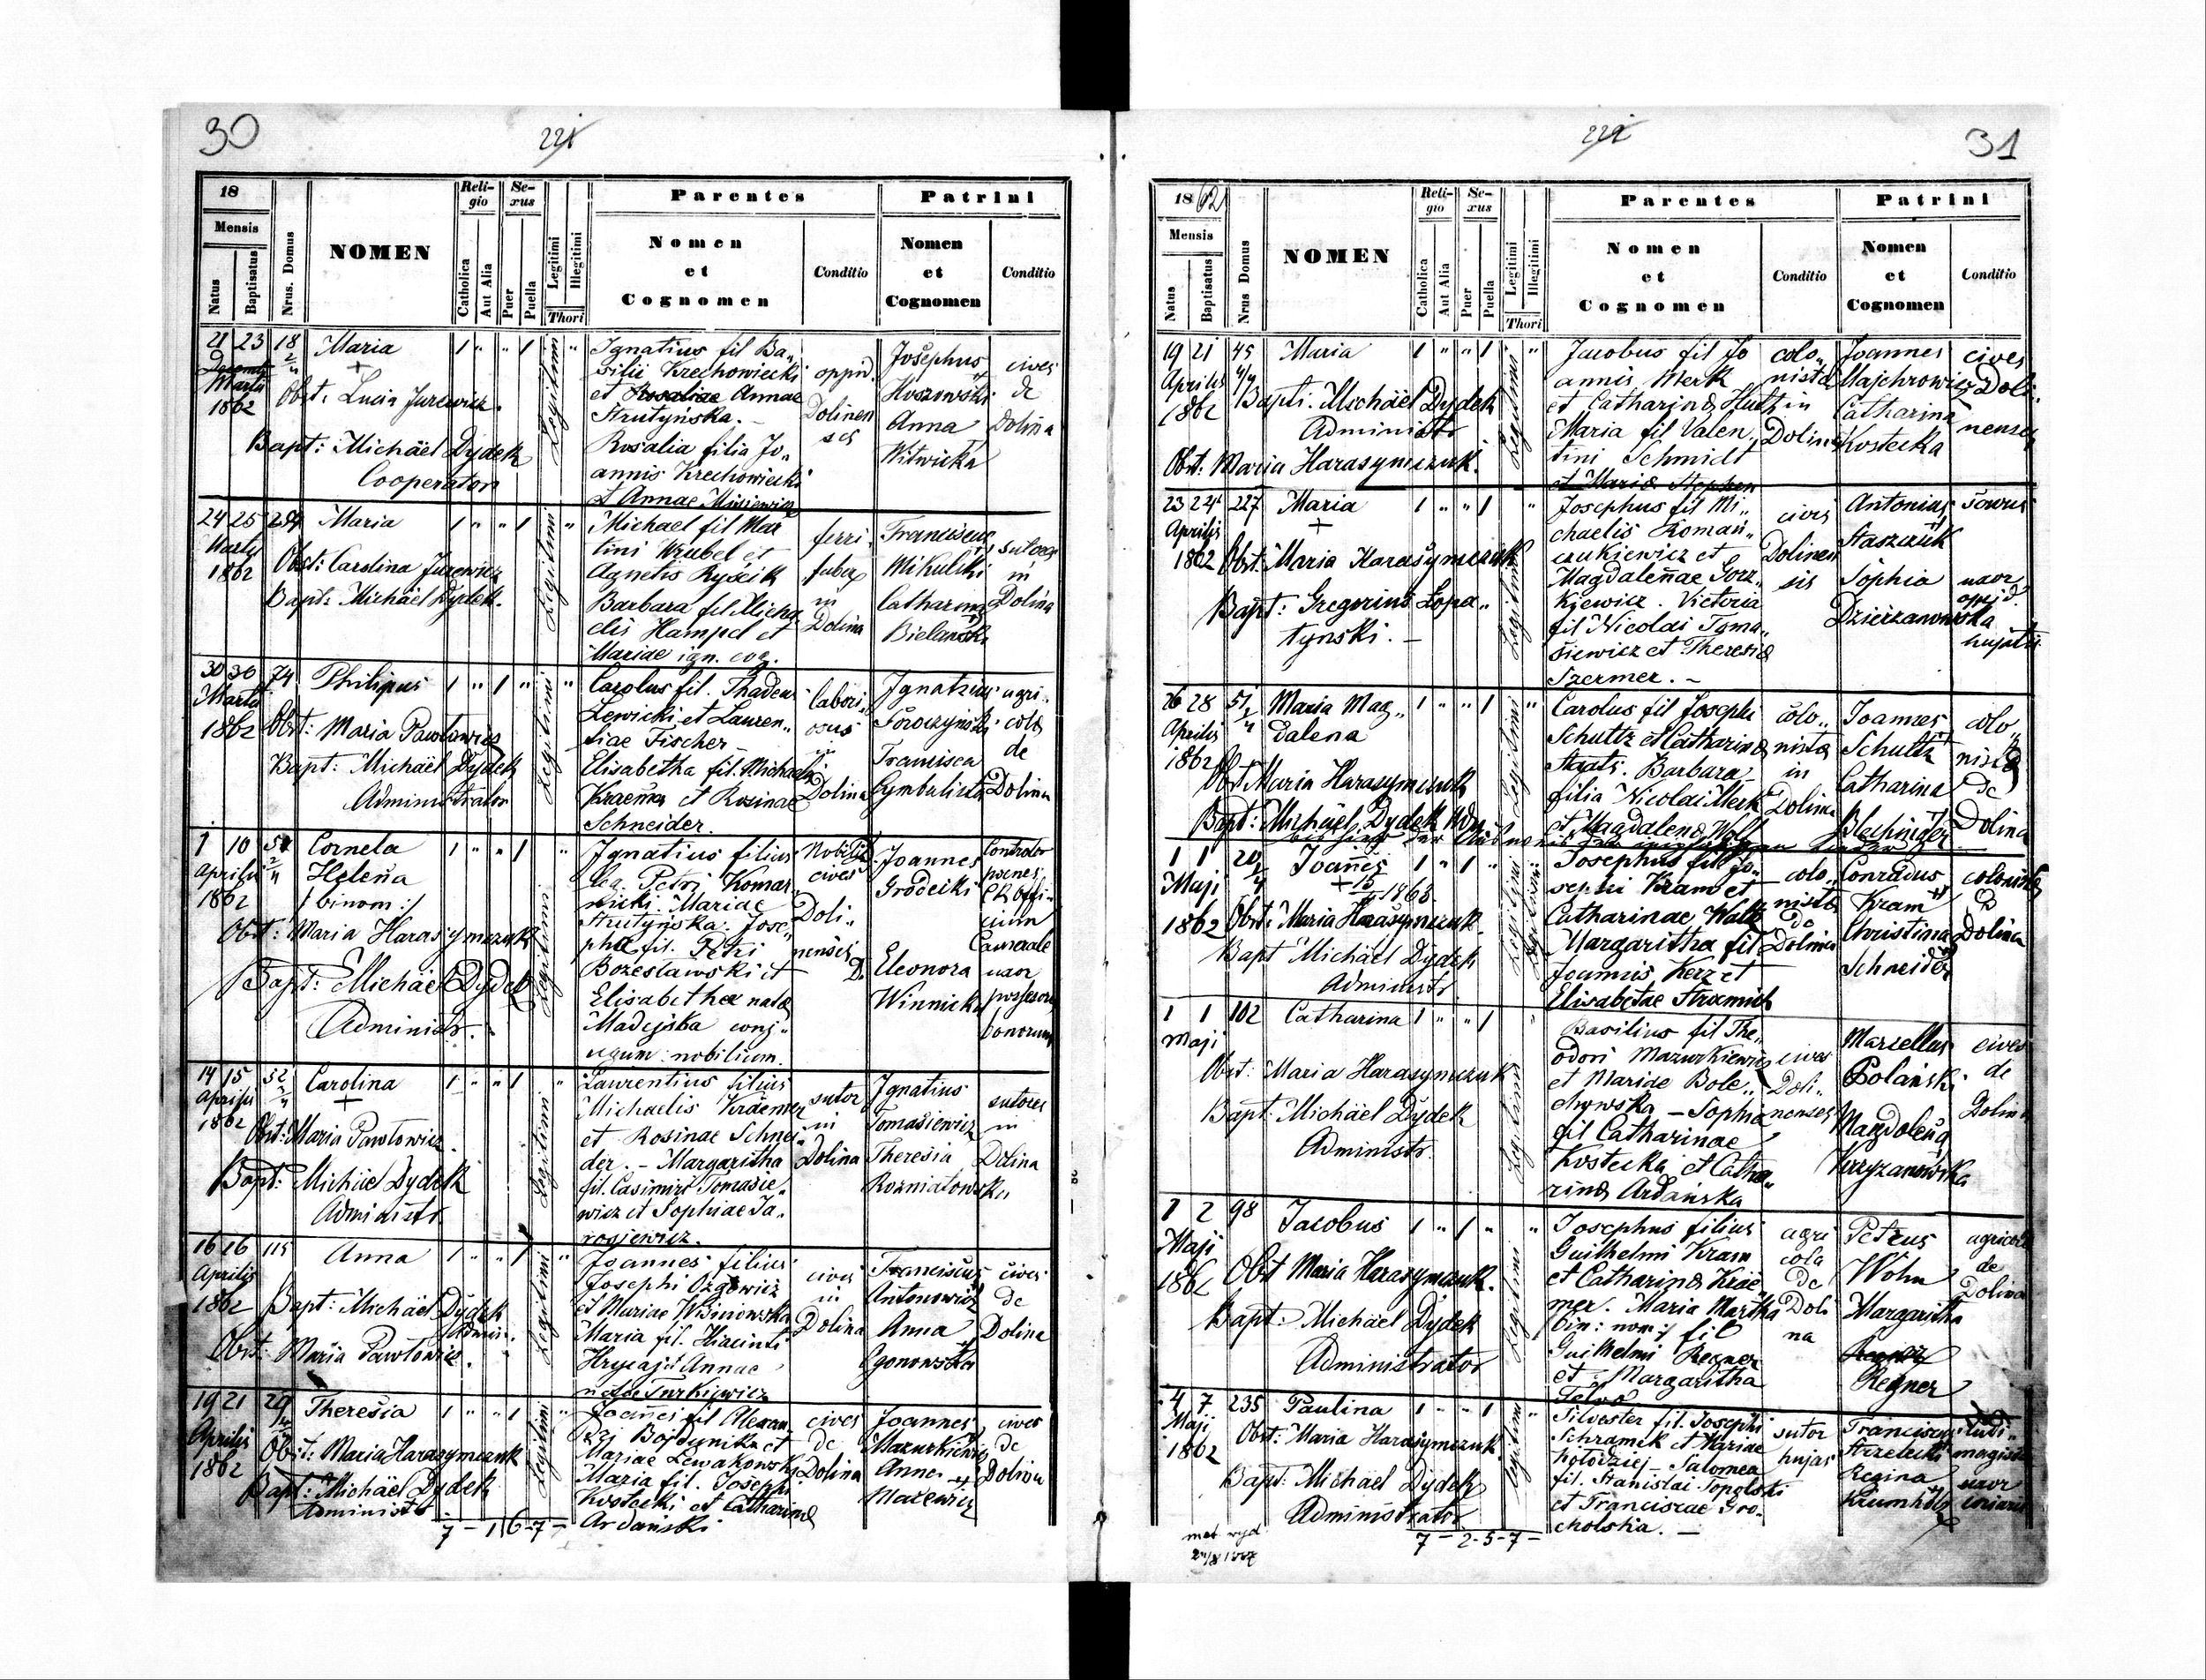 30
221
18
Mensis
Natus
Baptisatus
Nrus. Domus
NOMEN
Religio
Catholica
Aut Alia
Sexus
Puer
Puella
Legitimi
Illegitimi
Thori
Parentes
Nomen
et
Cognomen
Conditio
Patrini
Nomen
et
Cognomen
Conditio
21 23 18
Martii
1862
Maria
+
Obst. Lucia Jurewicz.
Bapt: Michäel Dydek
Cooperator
Legitimi
Ignatius fil Ba„
silii Krechowiecki
et Rosaliae Annae
Strutyńska. –
Rosalia filia Jo„
annis Krechowiecki
et Annae Misiewicz
oppid.
Dolinen
ses
Josephus
Hoszowski
Anna
Witwicka
cives
de
Dolina
24 25
Martii
1862
Maria
Obst: Carolina Jurewicz
Bapt: Michäel Dydek.
Legitimi
Michael fil Mar
tini Wrubel et
Agnetis Ryścik
Barbara fil Micha
elis Hampel et
Mariae ign. cog.
ferri
faber
in
Dolina
Franciscus
Mikulski
Catharina
Bielanski
sutores
in
Dolina
30 30 74
Martii
1862
Philipus
Obst: Maria Pawłowicz
Bapt: Michäel Dydek
Administrator
Legitimi
Carolus fil. Thadeu
Lewicki et Lauren„
tiae Fischer
Elisabetha fil. Michaeli
Kraemer et Rosinae
Schneider.
labori
osus
in
Dolina
Ignatius
Soroczyński
Francisca
Cymbalista
agri„
colae
de
Dolina
1 10
Aprilis
1862
Cornela
Helena
/binom:/
Obst: Maria Harasymczuk
Bapt: Michäel Dydek
Administr.
Legitimi
Ignatius filius
Petri Komar
nicki Mariae
Strutyńska. Jose„
pha fil. Petri
Bozesławski et
Elisabethae natae
Madejska conj„
ugum nobilium.
Nobiles
cives
Doli„
nenses
Joannes
Grodecki
Eleonora
Winnicka
Controlor
penes
Offi„
cium
Camerale
uxor
possesoris
bonorum
14 15 32
Aprilis
1862
Carolina
+
Obst: Maria Pawłowicz.
Bapt: Michäel Dydek
Administr.
Legitimi
Laurentius filius
Michaelis Kraemer
et Rosinae Schnei
der. – Margaritha
fil. Casimiri Tomasie„
wicz et Sophiae Ja„
rosiewicz.
sutor
in
Dolina
Ignatius
Tomasiewicz
Theresia
Rozniatowska
sutores
in
Dolina
16 16 115
Aprilis
1862
Anna
Bapt: Michäel Dydek
Admin.
Obst: Maria Pawłowicz.
Legitimi
Joannes filius
Josephi Ozgowicz
et Mariae Wisniowska
Maria fil. Hiacinti
Hrycaj et Annae
natae Turkiewicz
cives
in
Dolina
Franciscus
Antonowicz
Anna
Ogonowska
cives
de
Dolina
19 21 29
Aprilis
1862
Theresia
Obst: Maria Harasymczuk
Bapt: Michäel Dydek
Administr
Legitimi
Joannes fil Alexan„
Bojdunika et
Mariae Lewakowski
Maria fil. Josephi
Kostecki et Catharinae
Ardański
cives
de
Dolina
Joannes
Mazurkiewicz
Anna
Macewicz
cives
de
Dolina
7 – 1 6 – 7 –
222
31
1862
Mensis
Natus
Baptisatus
Nrus Domus
NOMEN
Religio
Catholica
Aut Alia
Sexus
Puer
Puella
Legitimi
Illegitimi
Thori
Parentes
Nomen
et
Cognomen
Conditio
Patrini
Nomen
et
Cognomen
Conditio
19 21 45
Aprilis
1862
Maria
Bapti. Michäel Dydek
Administr
Obst: Maria Harasymczuk.
Legitimi
Jacobus fil Jo
annis Merk
et Catharinae Huth
Maria fil Valen„
tini Schmidt
et Mariae Stephen
colo„
nista
in
Dolina
Joannes
Majchrowicz
Catharina
Kostecka
cives
Doli„
nenses
23 24 227
Aprilis
1862
Maria
+
Obst: Maria Harasymczuk
Bapt: Gregorius Lopa„
tynski. –
Legitimi
Josephus fil Mi„
chaelis Roman„
czukiewicz et
Magdalenae Gorz„
kiewicz. Victoria
fil Nicolai Toma„
siewicz et Theresiae
Szermer. –
civis
Dolinen
sis
Antonius
Staszczuk
Sophia
Dzierżanowska
uxor
oppid.
hujatis
26 28 51
Aprilis
1862
Maria Mag„
dalena
Obst Maria Harasymczuk
Bapt: Michäel Dydek Adm
Legitimi
Carolus fil Josephi
Schultz et Catharinae
Staats. Barbara
filia Nicolai Merk
et Magdalenae Wolf
colo„
nista
in
Dolina
Joannes
Schultz
Catharina
Blechinger
colo„
nistae
de
Dolina
1 1 20
Maji
1862
Joannes
+ 1863
Obst: Maria Harasymczuk.
Bapt Michäel Dydek
Administr
Legitimi
Josephus fil Jo„
sephi Kram et
Catharinae Waltz
Margaritha fil
Joannis Kerz et
Elisabetae Stramich
colo„
nista
de
Dolina
Conradus
Kram
Christina
Schneider
colonistae
de
Dolina
1 1 102
Maji
Catharina
Obst: Maria Harasymczuk
Bapt: Michäel Dydek
Administr.
Legitimi
Basilius fil The„
odori Mazurkiewicz
et Mariae Bole„
chowska – Sophia
fil Catharinae
Kostecka et Catha„
rinae Ardańska
cives
Doli„
nenses
Marcellus
Polański
Magdolena
Krzyzanowska
cives
de
Dolina
1 2 98
Maji
1862
Jacobus
Obst Maria Harasymczuk.
Bapt: Michäel Dydek
Administrator
Legitimi
Josephus filius
Guilhelmi Kram
et Catharinae Krae„
mer. Maria Martha
bin: nom:/ fil
Guilhelmi Regner
et Margaritha
agri
cola
de
Doli
na
Petrus
Wohn
Margaritha
Regner
agricolae
de
Dolina
4 7 235
Maji
1862
Paulina
Obst: Maria Harasymczuk.
Bapt: Michäel Dydek
Administrator
Legitimi
Silvester fil. Josephi
Schramek et Mariae
Kołodziej – Salomea
fil. Stanislai Topolski
et Franciscae Gro„
cholska. –
sutor
hujas
Franciscus
Strzelecki
Regina
Krumholz
ludi„
magister
uxor
7 – 2 – 5 – 7 –
met wyd